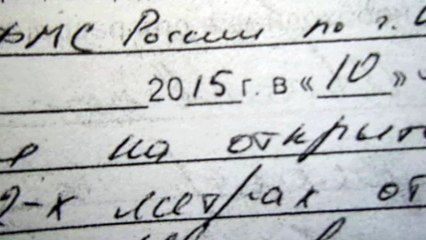 ФМС России по г.
2015 г. в «10»
на открыт
2-х метрах от